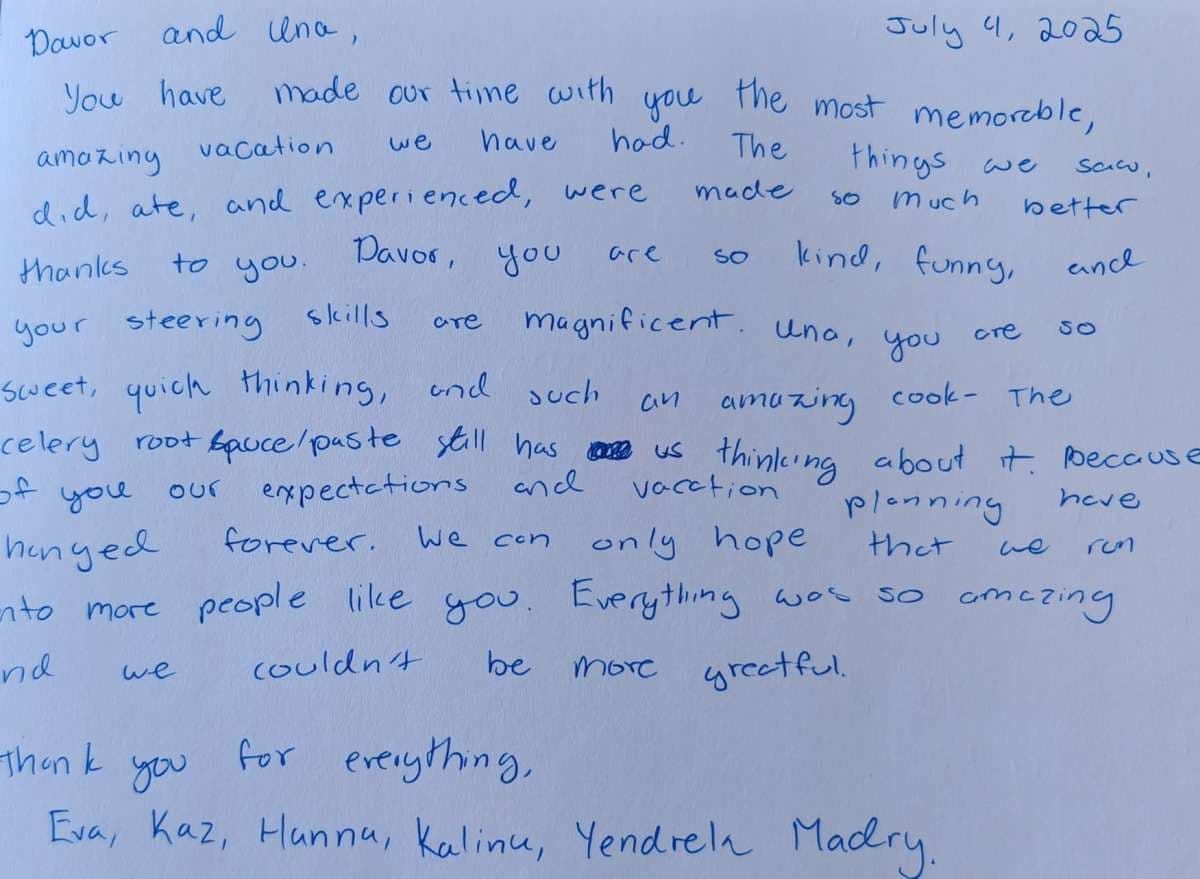 Davor and Una, July 4, 2025
You have made our time with you the most memorable,
amazing vacation we have had. The things we saw,
did, ate, and experienced, were made so much better
thanks to you. Davor, you are so kind, funny, and
your steering skills are magnificent. Una, you are so
sweet, quick thinking, and such an amazing cook- The
celery root sauce/paste still has us thinking about it. Because
of you our expectations and vacation planning have
hanged forever. We can only hope that we run
nto more people like you. Everything was so amazing
nd we couldn't be more greatful.
Thank you for everything,
Eva, Kaz, Hanna, Kalina, Yendrek Madry.